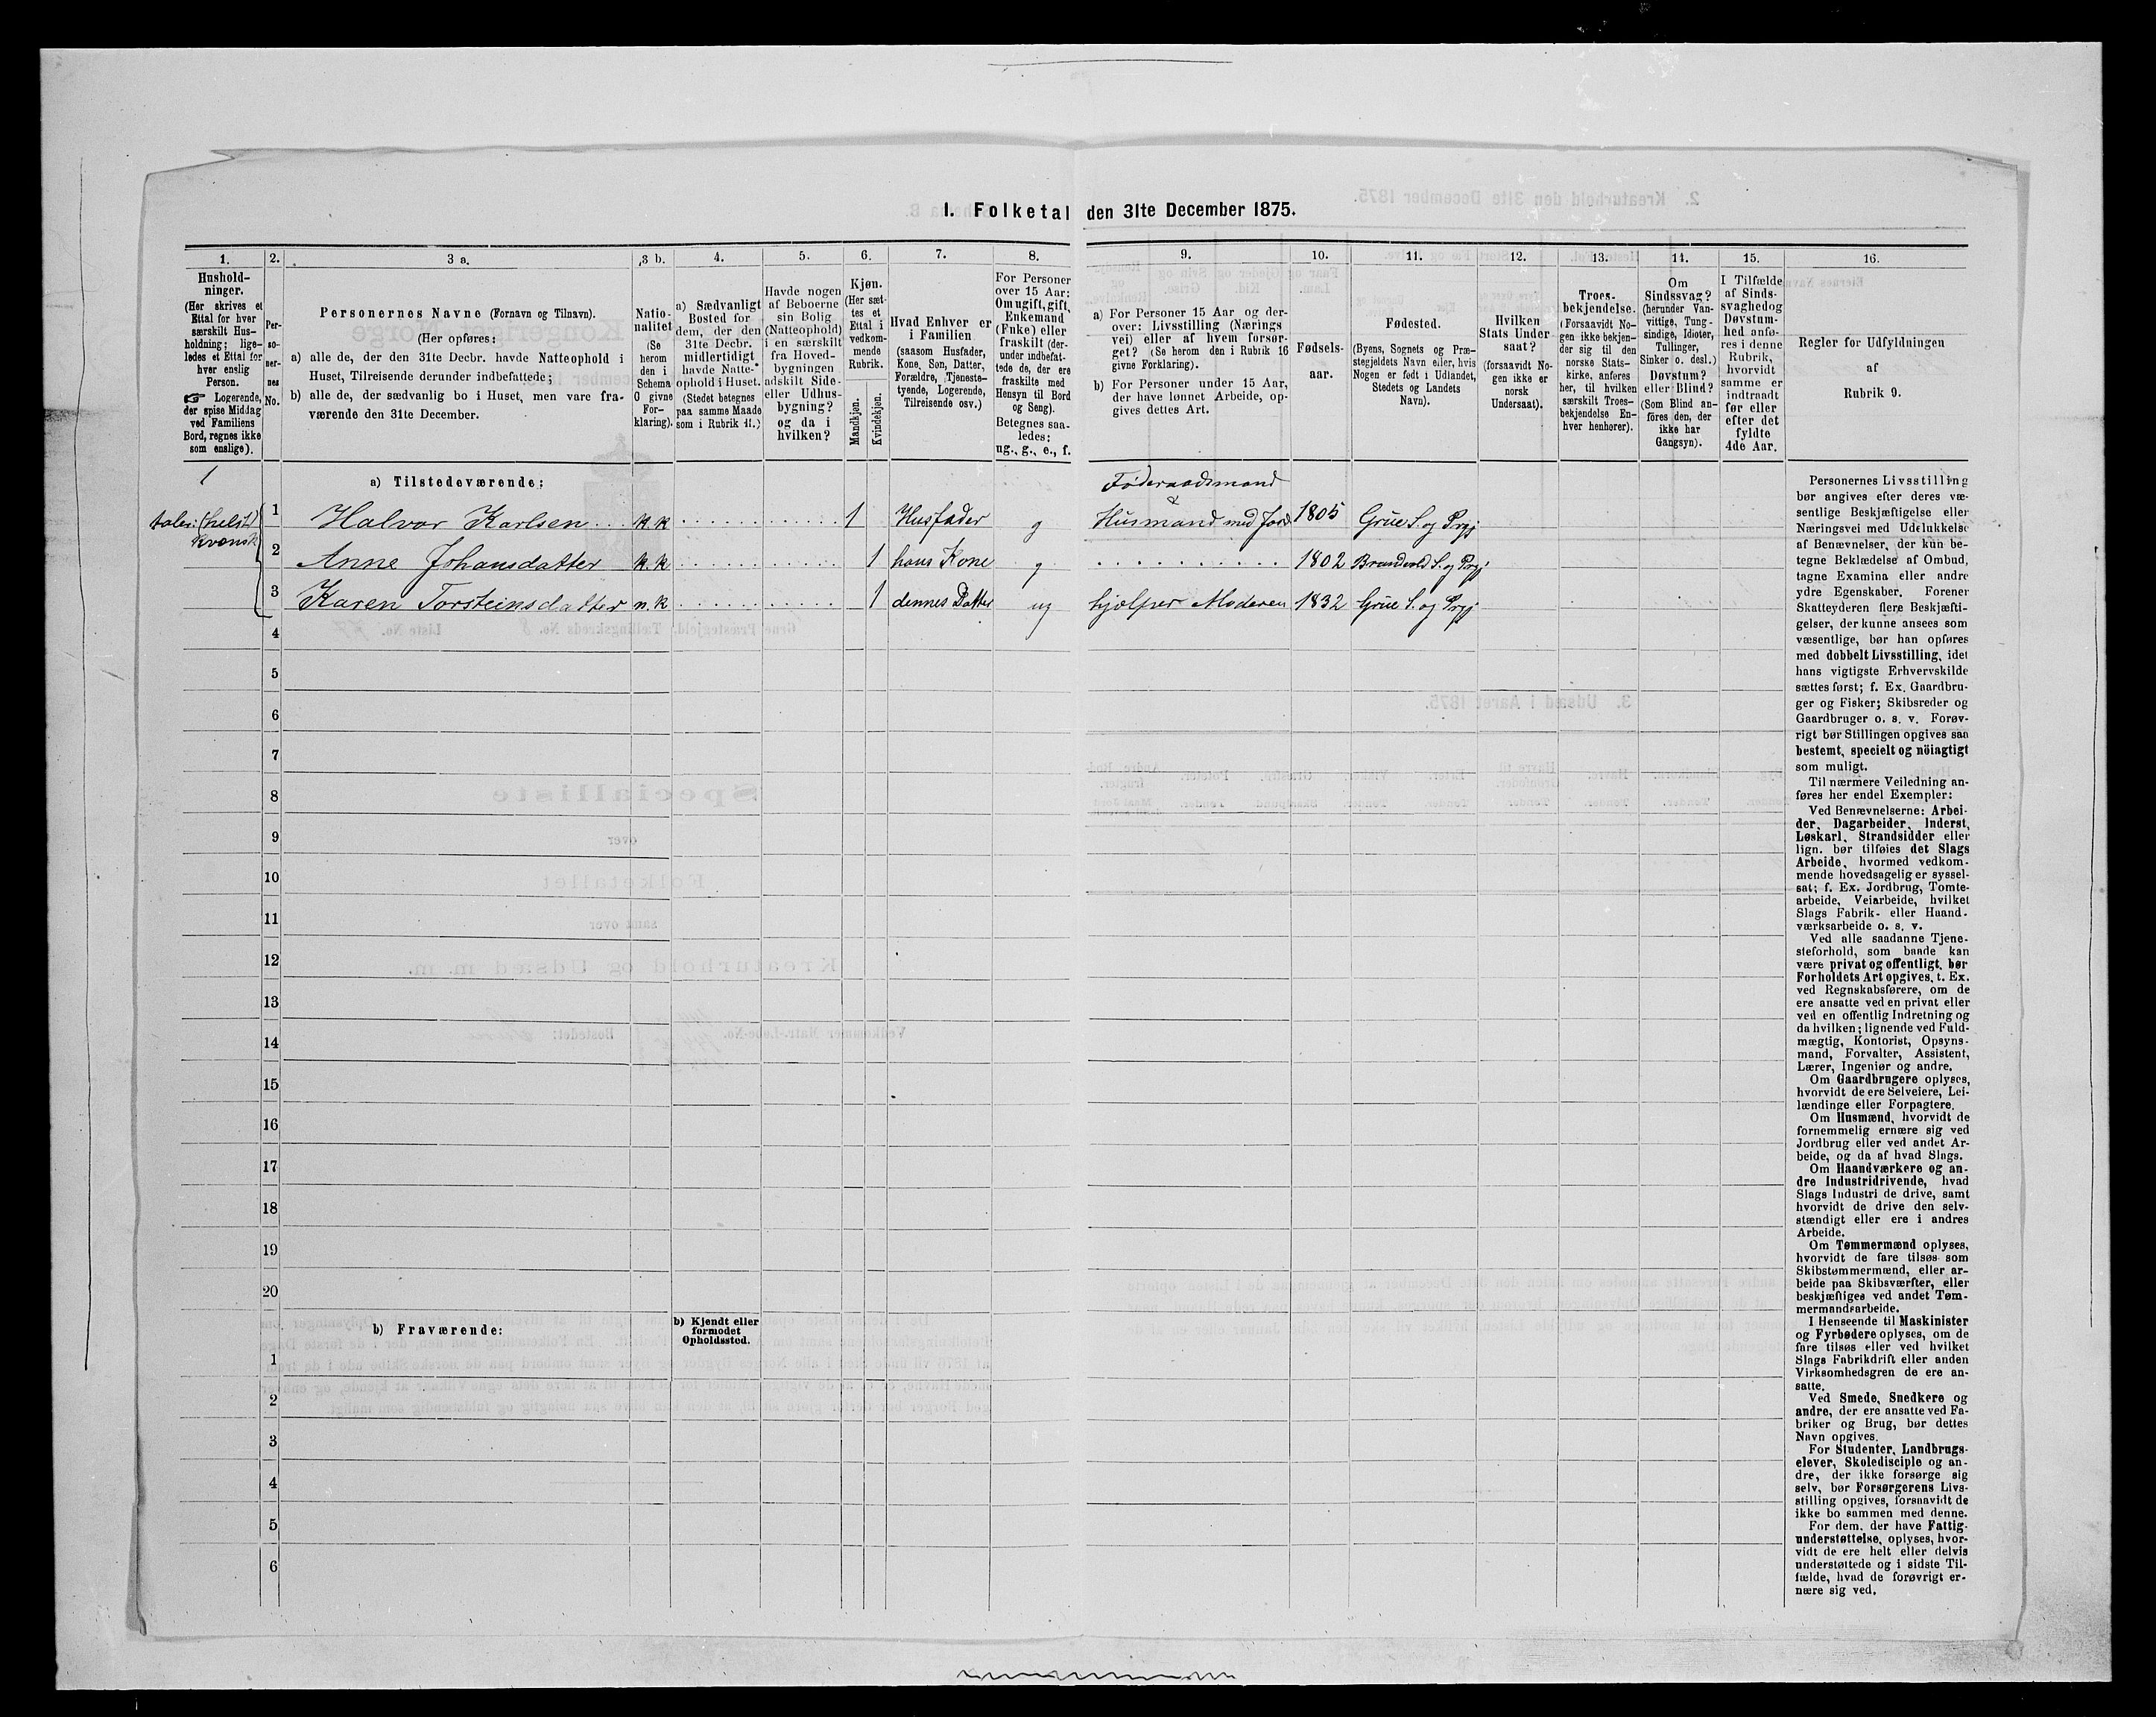 1. Folketal den 31te December 1875.
1. 2. 3 a. 3 b. 4. 5. 6. 7. 8. 9. 10. 11. 12. 13. 14. 15. 16.
Hushold-
ninger.
(Her skrives et
Ettal for hver
særskilt Hus-
holdning; lige-
ledes et Ettal for
hver enslig
Person.
☞ Logerende,
der spise Middag
ved Familiens
Bord, regnes ikke
som enslige).
Per-
so-
ner-
nes
No.
Personernes Navne (Fornavn og Tilnavn).
(Her opføres:
a) alle de, der den 31te Decbr. havde Natteophold i
Huset, Tilreisende derunder indbefattede;
b) alle de, der sædvanlig bo i Huset, men vare fra-
værende den 31te December.
Natio-
nalitet
(Se
herom
den i
Schema
O givne
For-
klaring).
a) Sædvanligt
Bosted for
dem, der den
31te Decbr.
midlertidigt
havde Natte-
ophold i Huset.
(Stedet betegnes
paa samme Maade
som i Rubrik 11.)
Havde nogen
af Beboerne
sin Bolig
(Natteophold)
i en særskilt
fra Hoved-
bygningen
adskilt Side-
eller Udhus-
bygning?
og da i
hvilken?
Kjøn.
(Her sæt-
tes et
Ettal i
vedkom-
mende
Rubrik.
Mandkjøn.
Kvindekjøn.
Hvad Enhver er
i Familien
(saasom Husfader,
Kone, Søn, Datter,
Forældre, Tjeneste-
tyende, Logerende,
Tilreisende osv.)
For Personer
over 15 Aar:
Om ugift, gift,
Enkemand
(Enke) eller
fraskilt (der-
under indbefat-
tede de, der ere
fraskilte med
Hensyn til Bord
og Seng).
Betegnes saa-
ledes:
ug., g., e., f.
a) For Personer 15 Aar og der-
over: Livsstilling (Nærings
vei) eller af hvem forsør-
get? (Se herom den i Rubrik 16
givne Forklaring).
b) For Personer under 15 Aar,
der have lønnet Arbeide, op-
gives dettes Art.
Fødsels-
aar.
Fødested.
(Byens, Sognets og Præ-
stegjeldets Navn eller, hvis
Nogen er født i Udlandet,
Stedets og Landets
Navn).
Hvilken
Stats Under
saat?
(forsaavidt No-
gen ikke er
norsk
Undersaat).
Troes-
bekjendelse.
(Forsaavidt No-
gen ikke bekjen-
der sig til den
norske Stats-
kirke, anføres
her, til hvilken
særskilt Troes-
bekjendelse En-
hver henhører).
Om
Sindssvag?
(herunder Van-
vittige, Tung-
sindige, Idioter,
Tullinger,
Sinker o. desl.)
Døvstum?
eller Blind?
(Som Blind an-
føres den, der
ikke har
Gangsyn).
I Tilfælde
af Sinds-
svaghedog
Døvstum-
hed anfø-
res i denne
Rubrik,
hvorvidt
samme er
indtraadt
før eller
efter det
fyldte
4de Aar.
Regler for Udfyldningen
af
Rubrik 9.
1
a) Tilstedeværende:
Føderaadsmand
&
taler (helst)
kvensk
1 Halvor Karlsen k.k 1 Husfader g Husmand med Jord 1805 Grue S. og Prgj
2 Anne Johansdatter k.k 1 hans Kone g 1802 Brandvold S. og Prgj
3 Karen Torsteinsdatter n.k 1 dennes Datter ug hjælper Moderen 1832 Grue S. og Prgj
4
5
6
7
8
9
10
11
12
13
14
15
16
17
18
19
20
b) Fraværende:
b) Kjendt eller
formodet
Opholdssted.
1
2
3
4
5
6
Personernes Livsstilling
bør angives efter deres væ-
sentlige Beskjæftigelse eller
Næringsvei med Udelukkelse
af Benævnelser, der kun be-
tegne Beklædelse af Ombud,
tagne Examina eller andre
ydre Egenskaber. Forener
Skatteyderen flere Beskjæfti-
gelser, der kunne ansees som
væsentlige, bør han opføres
med dobbelt Livsstilling, idet
hans vigtigste Erhvervskilde
sættes først; f. Ex. Gaardbru-
ger og Fisker; Skibsreder og
Gaardbruger o. s. v. Forøv-
rigt bør Stillingen opgives saa
bestemt, specielt og nöiagtigt
som muligt.
Til nærmere Veiledning an-
føres her endel Exempler:
Ved Benævnelserne: Arbei-
der, Dagarbeider, Inderst,
Løskarl, Strandsidder eller
lign. bør tilføies det Slags
Arbeide, hvormed vedkom-
mende hovedsagelig er syssel-
sat; f. Ex. Jordbrug, Tomte-
arbeide, Veiarbeide, hvilket
Slags Fabrik- eller Haand-
værksarbeide o. s. v.
Ved alle saadanne Tjene-
steforhold, som baade kan
være privat og offentligt, bør
Forholdets Art opgives, t. Ex.
ved Regnskabsførere, om de
ere ansatte ved en privat eller
ved en offentlig Indretning og
da hvilken; lignende ved Fuld-
mægtig, Kontorist, Opsyns-
mand, Forvalter, Assistent,
Lærer, Ingeniør og andre.
Om Gaardbrugere oplyses,
hvorvidt de ere Selveiere, Lei-
lændinge eller Forpagtere.
Om Husmænd, hvorvidt de
fornemmelig ernære sig ved
Jordbrug eller ved andet Ar-
beide, og da af hvad Slags.
Om Haandværkere og an-
dre Industridrivende, hvad
Slags Industri de drive, samt
hvorvidt de drive den selv-
stændigt eller ere i andres
Arbeide.
Om Tømmermænd oplyses,
hvorvidt de fare tilsøs som
Skibstømmermænd, eller ar-
beide paa Skibsværfter, eller
beskjæftiges ved andet Tøm-
mermandsarbeide.
I Henseende til Maskinister
og Fyrbødere oplyses, om de
fare tilsøs eller ved hvilket
Slags Fabrikdrift eller anden
Virksomhedsgren de ere an-
satte.
Ved Smede, Snedkere og
andre, der ere ansatte ved Fa-
briker og Brug, bør dettes
Navn opgives.
For Studenter, Landbrugs-
elever, Skoledisciple og an-
dre, der ikke forsørge sig
selv, bør Forsørgerens Livs-
stilling opgives, forsaavidt de
ikke bo sammen med denne.
For dem, der have Fattig-
understøttelse, oplyses, hvor-
vidt de ere helt eller delvis
understøttede og i sidste Til-
fælde, hvad de forøvrigt er-
nære sig ved.